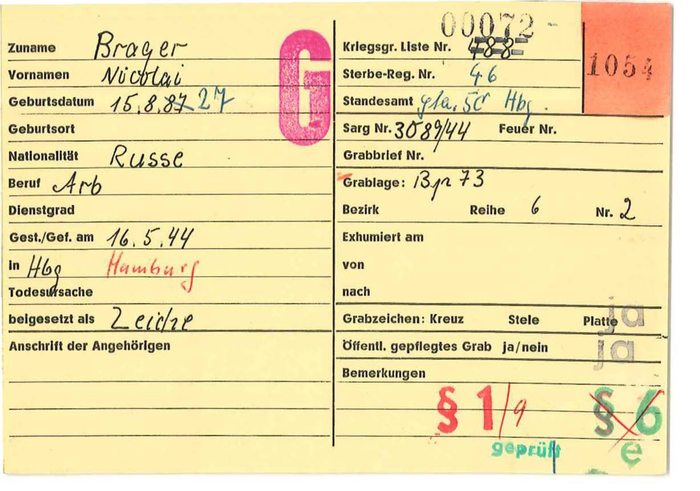 00072
Zuname Brager
Kriegsgr. Liste Nr. 488
1054
Vornamen Nicolai
Sterbe-Reg. Nr. 46
Geburtsdatum 15.8.87 27
G
Standesamt gla. 50 Hbg.
Geburtsort
Sarg Nr. 3089/44 Feuer Nr.
Nationalität Russe
Grabbrief Nr.
Beruf Arb
Grablage: Bp 73
Dienstgrad
Bezirk Reihe 6 Nr. 2
Gest./Gef. am 16.5.44
Exhumiert am
in Hbg Hamburg
von
Todesursache
nach
beigesetzt als Leiche
Grabzeichen: Kreuz Stele Platte ja
Anschrift der Angehörigen
Öffentl. gepflegtes Grab ja/nein ja
Bemerkungen
§ 1/9 § 6
geprüft e